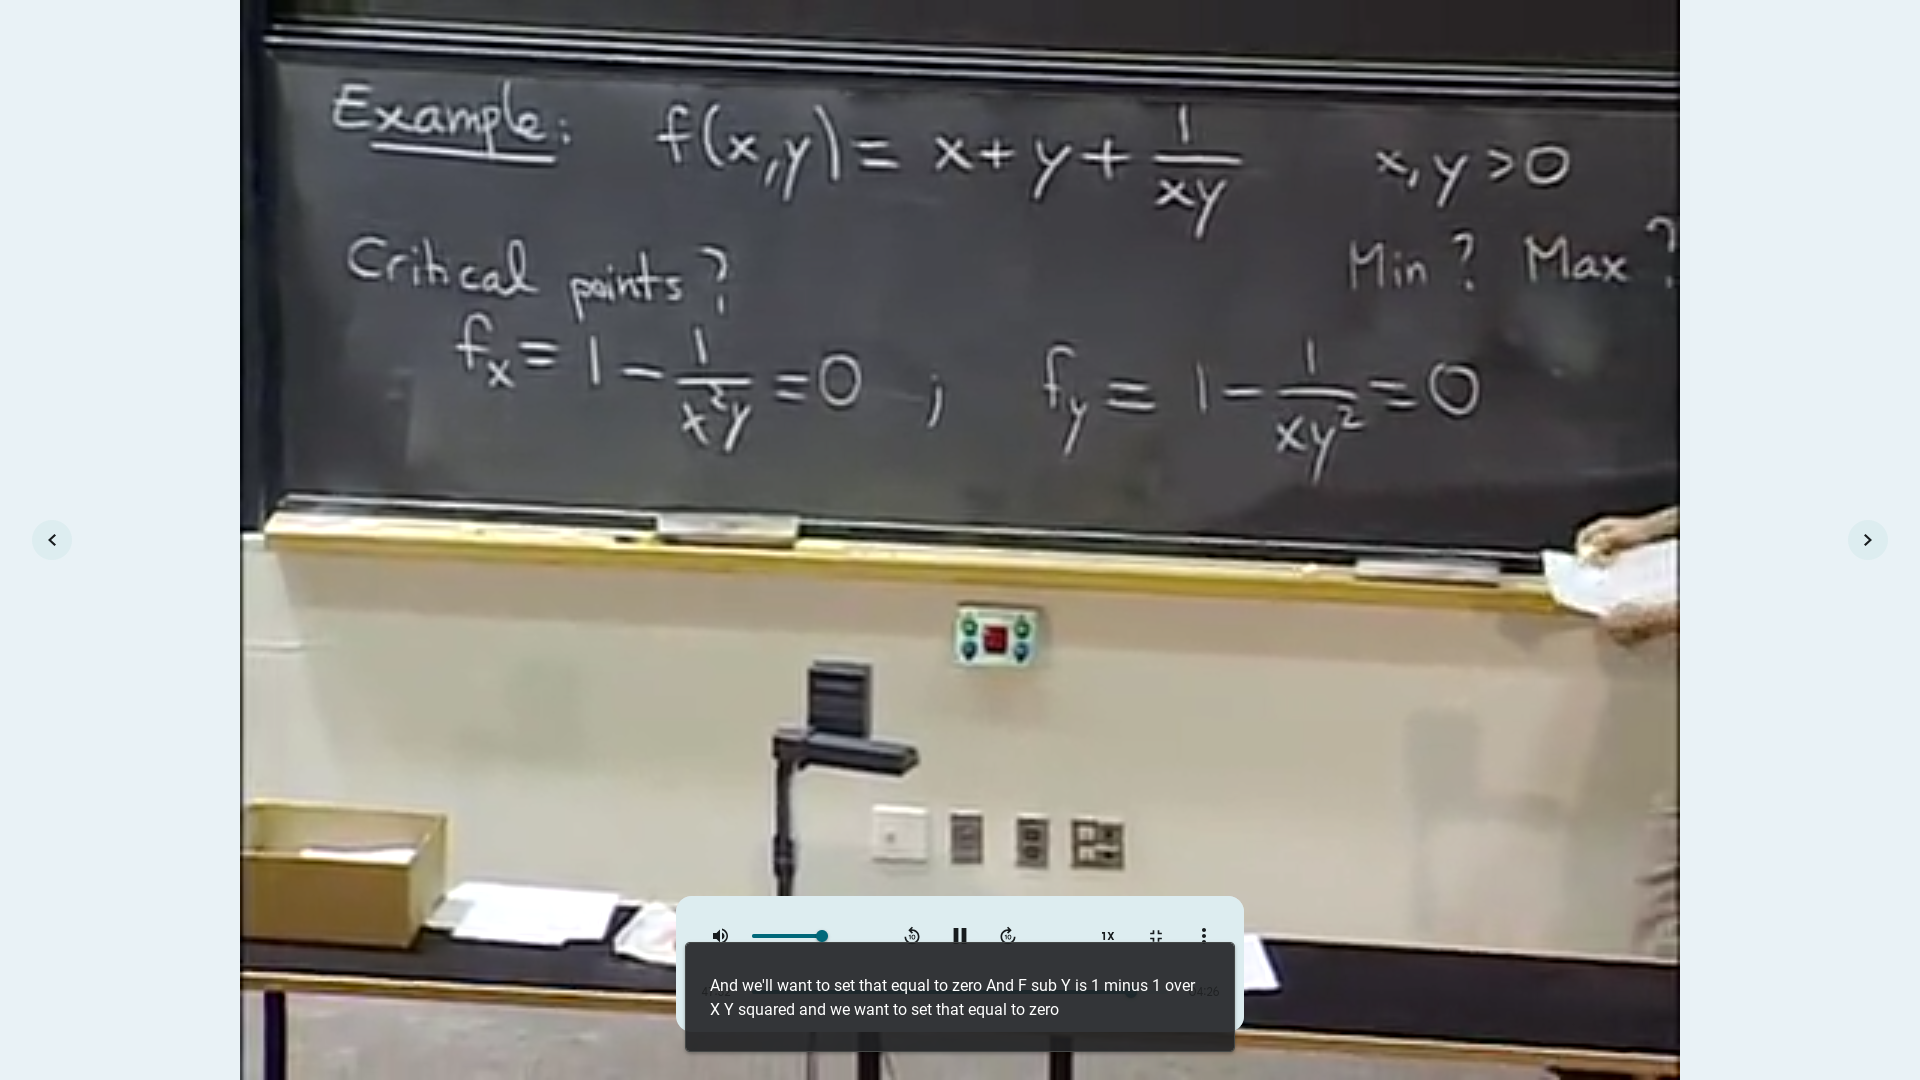 Example: f(x,y) = x + y + 1/xy x, y > 0
Min ? Max ?
Critical points ?
f_x = 1 - 1/x²y = 0 ; f_y = 1 - 1/xy² = 0
1X
And we'll want to set that equal to zero And F sub Y is 1 minus 1 over
X Y squared and we want to set that equal to zero